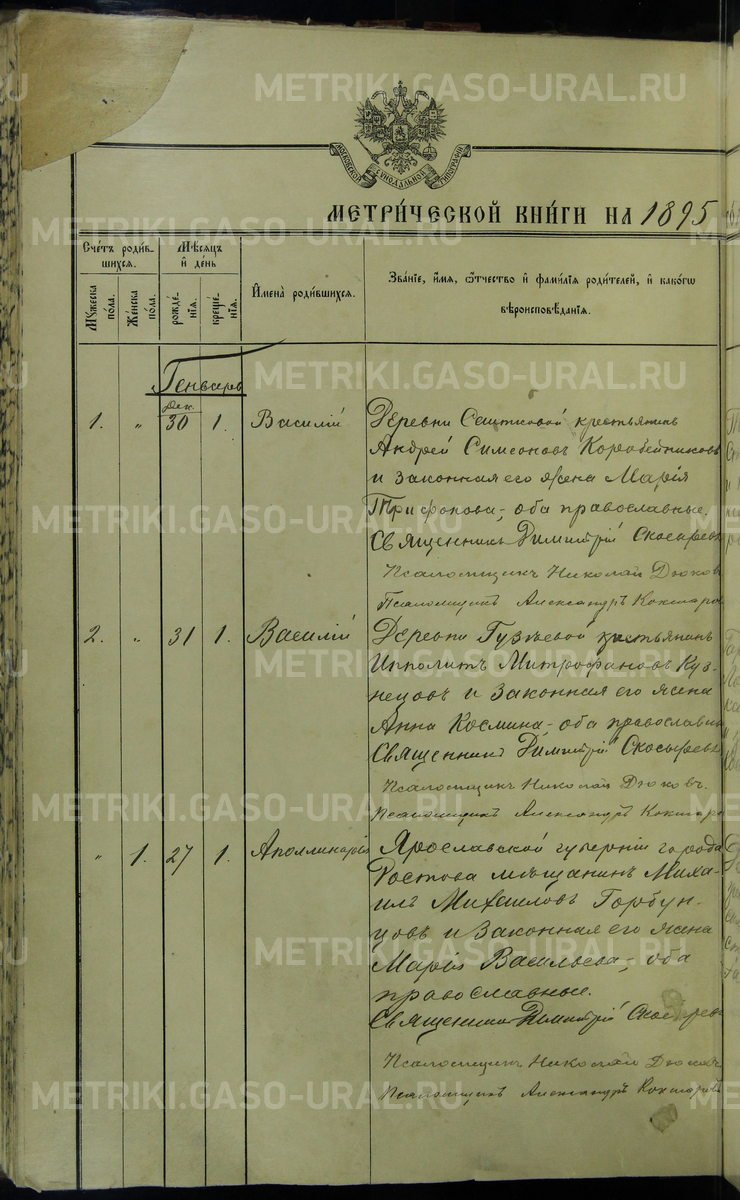 METRIKI.GASO-URAL.RU
МОСКОВСКОЙ СѴНОДАЛЬНОЙ ТИПОГРАФІИ
МЕТРИ́ЧЕСКОЙ КНИ́ГИ НА 1895
Сче́тъ роди́вшихся.
Мѣ́сяцъ и҆ де́нь
И҆мена̀ роди́вшихся.
Зва́ніе, и҆́мя, ѻ҆́тчество и҆ фами́лія роди́телей, и҆ како́гѡ
вѣроисповѣ́данія.
Мꙋ́жеска по́ла.
Же́нска по́ла.
рожде́нія.
креще́нія.
Генварь
Дек.
1. " 30 1. Василій Деревни крестьянинъ
Андрей Симеоновъ Коробейниковъ
и законная его жена Марія
Трифонова, оба православные.
Священникъ Димитрій Скосыревъ
Псаломщикъ Николай Дюковъ
Псаломщикъ Александръ Кокшаро
2. " 31 1. Василій Деревни Гузѣевой крестьянинъ
Ипполитъ Митрофановъ Куз-
нецовъ и законная его жена
Анна Космина, оба православны
Священникъ Димитрій Скосыревъ
Псаломщикъ Николай Дюковъ.
Псаломщикъ Александръ Кокшаро
" 1. 27 1. Аполлинарія Ярославской губерніи города
Ростова мѣщанинъ Миха-
илъ Михаиловъ Горбун-
цовъ и законная его жена
Марія Васильева, оба
православные.
Священникъ Димитрій Скосырев
Псаломщикъ Николай Дюковъ
Псаломщикъ Александръ Кокшаро